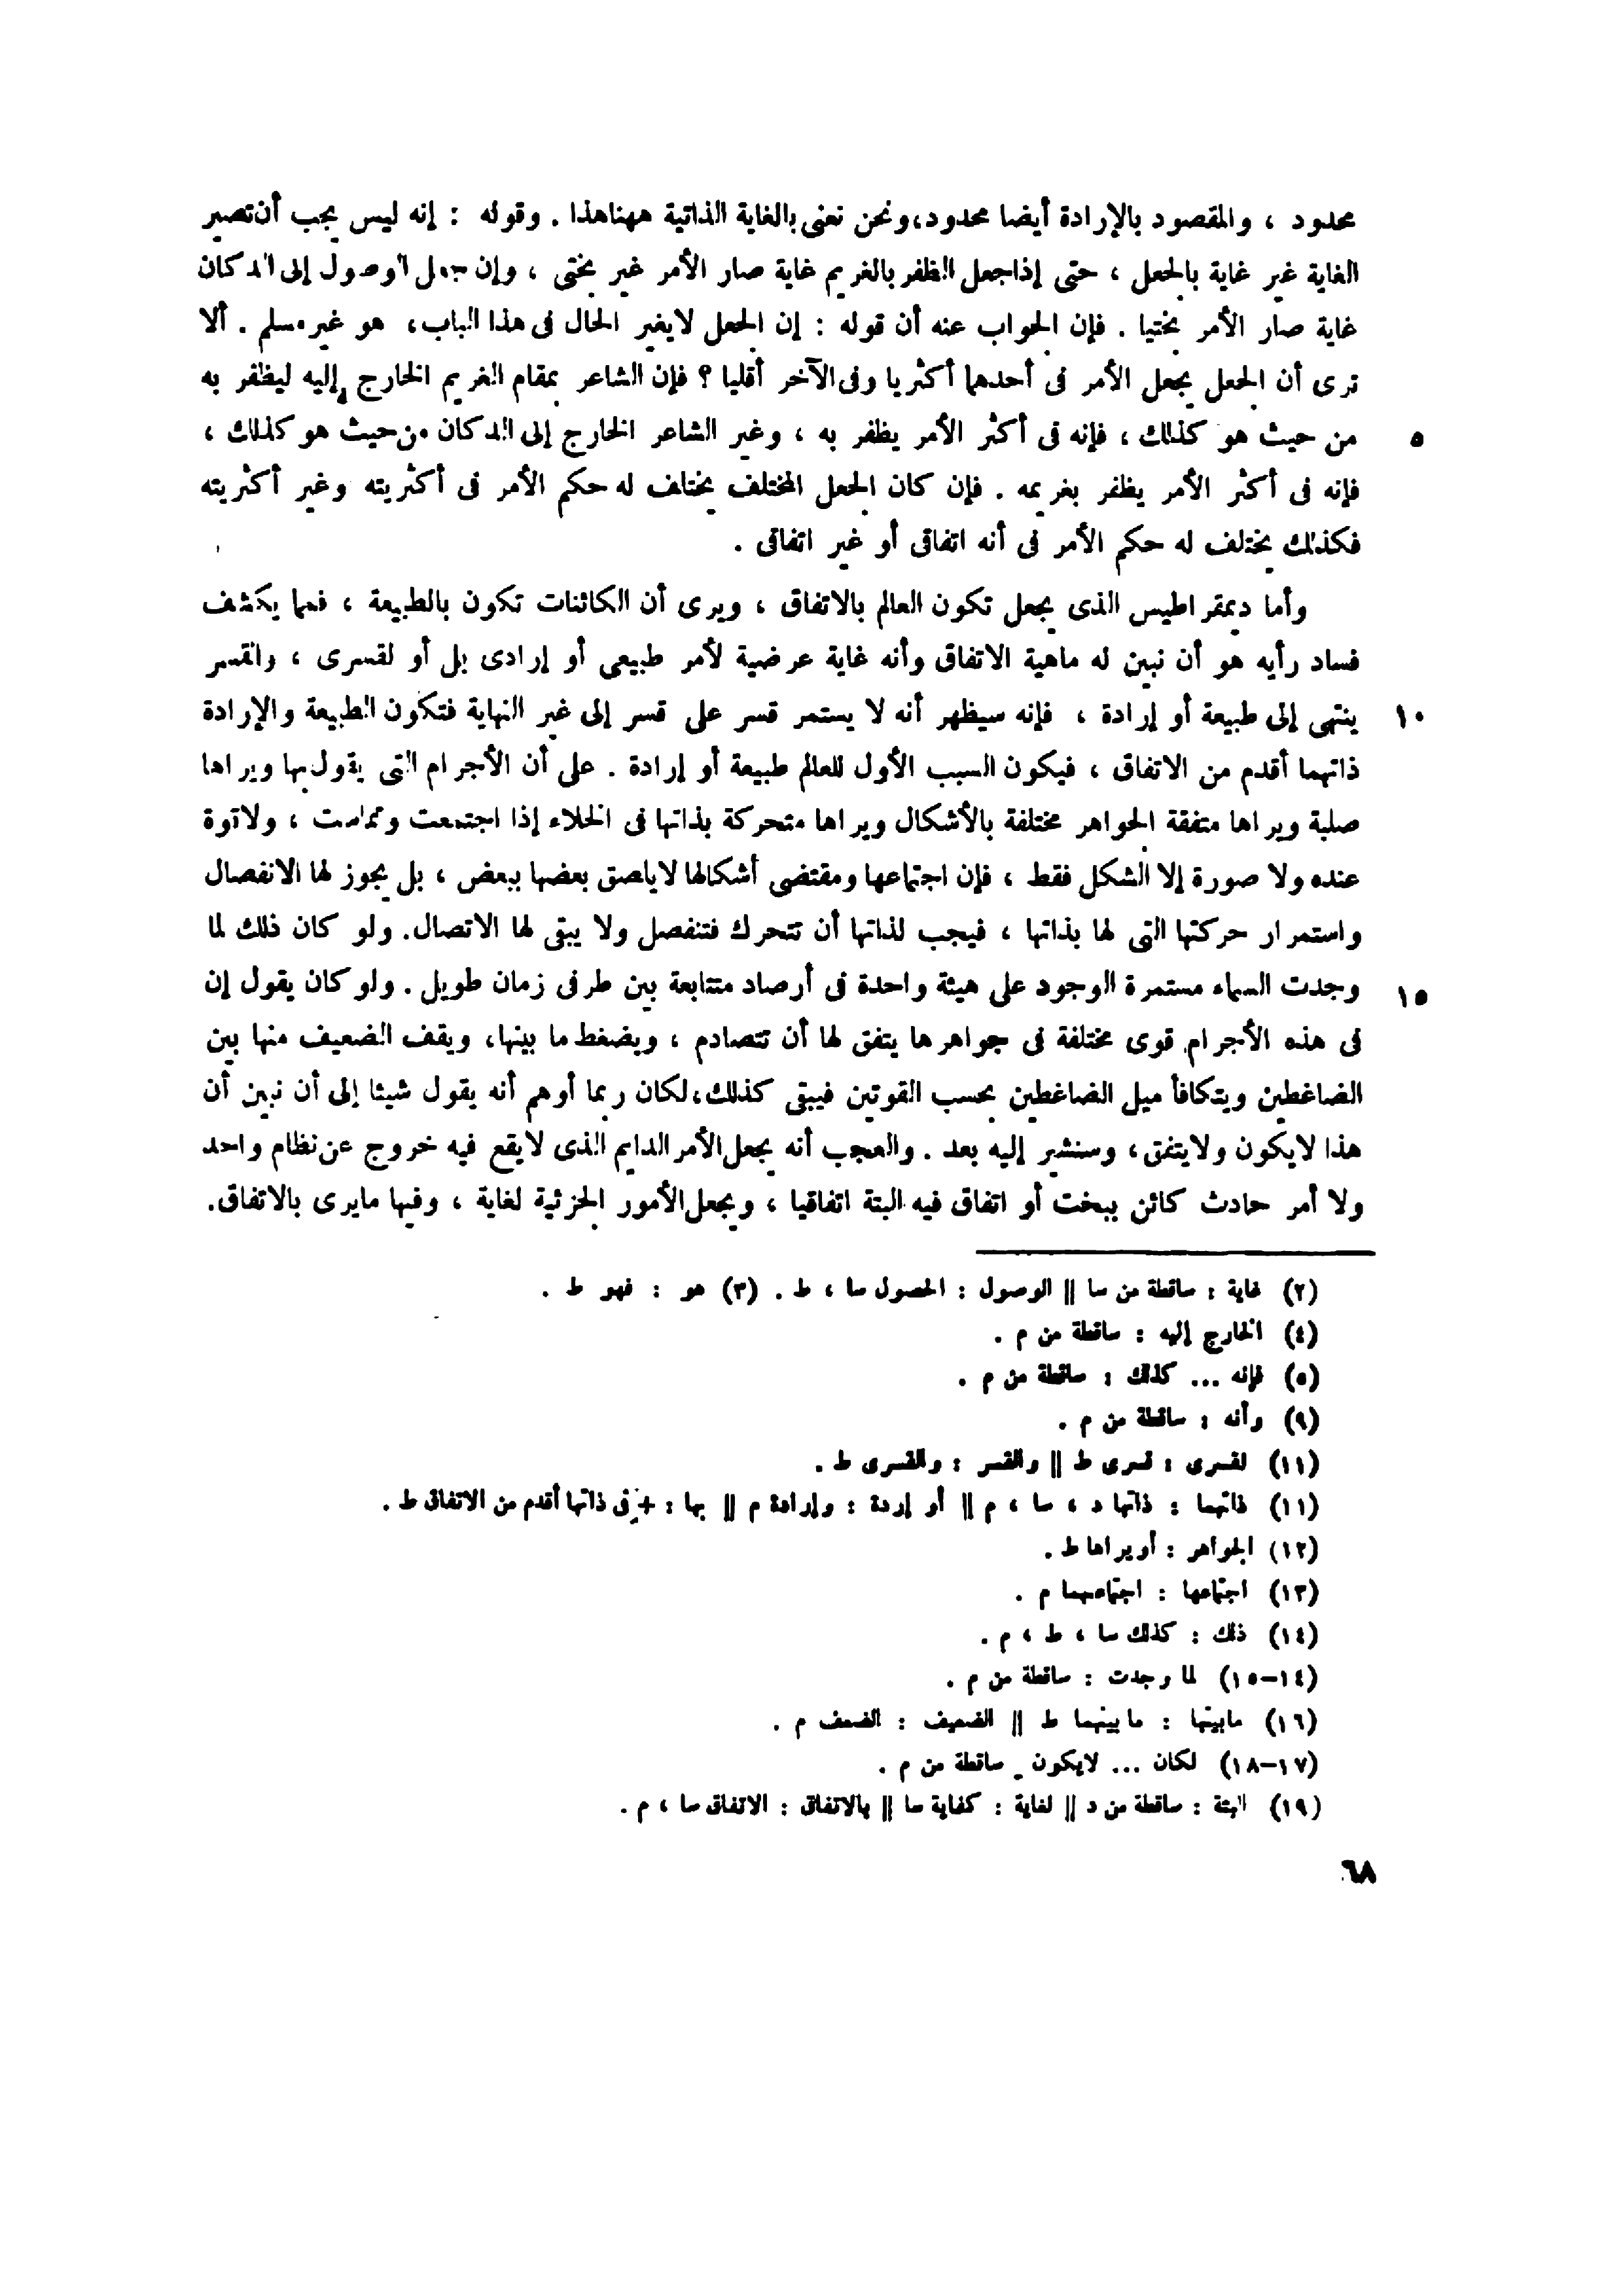 محدود ، والمقصود بالإرادة أيضا محدود،ونحن نعنى بالغاية الذاتية ههناهذا . وقوله : إنه ليس يجب أن تصير
الغاية غير غاية بالجعل ، حتى إذاجعل الظفر بالغريم غاية صار الأمر غير بختى ، وإن جعل الوصول إلى الدكان
غاية صار الأمر بختيا . فإن الجواب عنه أن قوله : إن الجعل لايغير الحال فى هذا الباب، هو غير مسلم . ألا
ترى أن الجعل يجعل الأمر فى أحدهما أكثريا وفى الآخر أقليا ؟ فإن الشاعر بمقام الغريم الخارج إليه ليظفر به
٥ من حيث هو كذلك ، فإنه فى أكثر الأمر يظفر به ، وغير الشاعر الخارج إلى الدكان من حيث هو كذلك ،
فإنه فى أكثر الأمر يظفر بغريمه . فإن كان الجعل المختلف يختلف له حكم الأمر فى أكثريته وغير أكثريته
فكذلك يختلف له حكم الأمر فى أنه اتفاقى أو غير اتفاقى .
وأما ديمقراطيس الذى يجعل تكون العالم بالاتفاق ، ويرى أن الكائنات تكون بالطبيعة ، فمما يكشف
فساد رأيه هو أن نبين له ماهية الاتفاق وأنه غاية عرضية لأمر طبيعى أو إرادى بل أو لقسرى ، والقسر
١٠ ينتهى إلى طبيعة أو إرادة ، فإنه سيظهر أنه لا يستمر قسر على قسر إلى غير النهاية فتكون الطبيعة والإرادة
ذاتهما أقدم من الاتفاق ، فيكون السبب الأول للعالم طبيعة أو إرادة . على أن الأجرام التى يقول بها ويراها
صلبة ويراها متفقة الجواهر مختلفة بالأشكال ويراها متحركة بذاتها فى الخلاء إذا اجتمعت وتماست ، ولاقوة
عنده ولا صورة إلا الشكل فقط ، فإن اجتماعها ومقتضى أشكالها لايلصق بعضها ببعض ، بل يجوز لها الانفصال
واستمرار حركتها التى لها بذاتها ، فيجب لذاتها أن تتحرك فتنفصل ولا يبقى لها الاتصال. ولو كان ذلك لما
١٥ وجدت السماء مستمرة الوجود على هيئة واحدة فى أرصاد متتابعة بين طرفى زمان طويل . ولو كان يقول إن
فى هذه الأجرام قوى مختلفة فى جواهرها يتفق لها أن تتصادم ، ويضغط ما بينها، ويقف الضعيف منها بين
الضاغطين ويتكافأ ميل الضاغطين بحسب القوتين فيبقى كذلك،لكان ربما أوهم أنه يقول شيئا إلى أن نبين أن
هذا لايكون ولايتفق، وسنشير إليه بعد . والعجب أنه يجعل الأمر الدايم الذى لايقع فيه خروج عن نظام واحد
ولا أمر حادث كائن ببخت أو اتفاق فيه البتة اتفاقيا ، ويجعل الأمور الجزئية لغاية ، وفيها مايرى بالاتفاق.
(٢) غاية : ساقطة من سا || الوصول : الحصول سا ، ط . (٣) هو : فهو ط .
(٤) الخارج إليه : ساقطة من م .
(٥) فإنه ... كذلك : ساقطة من م .
(٩) وأنه : ساقطة من م .
(١١) لقسرى : قسرى ط || والقسر : والقسرى ط .
(١١) ذاتهما : ذاتها د ، سا ، م || أو إردة : وإرادة م || بها : + فى ذاتها أقدم من الاتفاق ط .
(١٢) الجواهر : أويراها ط .
(١٣) اجتماعها : اجتماعهما م .
(١٤) ذلك : كذلك سا ، ط ، م .
(١٤–١٥) لما وجدت : ساقطة من م .
(١٦) مابينها : ما بينهما ط || الضعيف : الضعف م .
(١٧–١٨) لكان ... لايكون . ساقطة من م .
(١٩) البتة : ساقطة من د || لغاية : كغاية سا || بالاتفاق : الاتفاق سا ، م .
٦٨